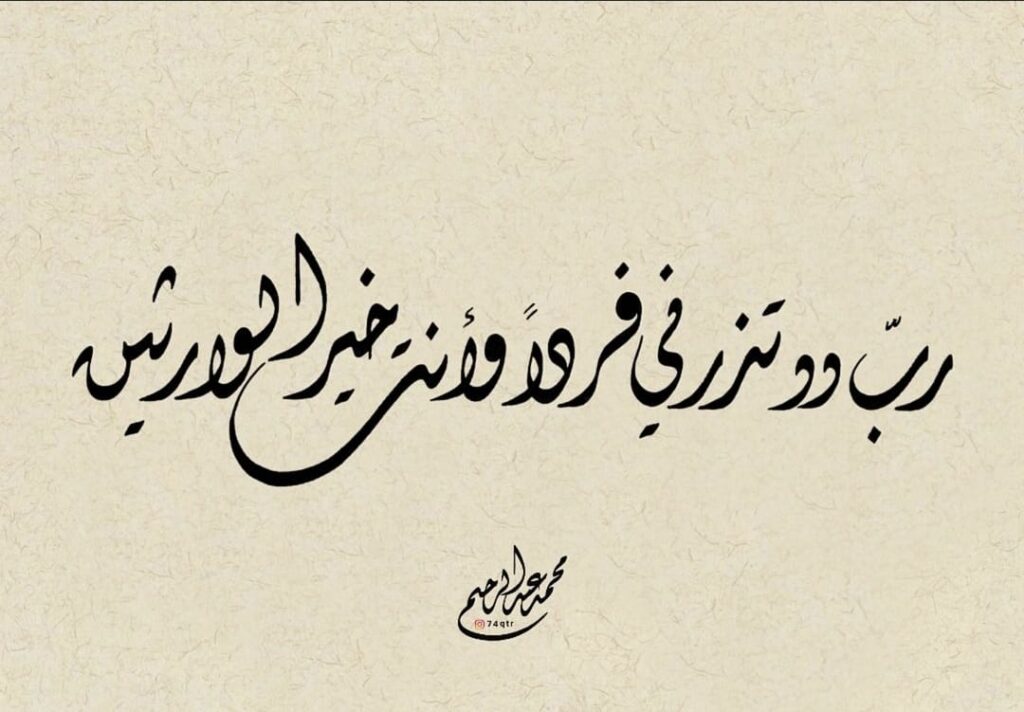 ربّ دد تذرني فرداً وأنت خير الوارثين
محمد عبدالرحيم
74qtr